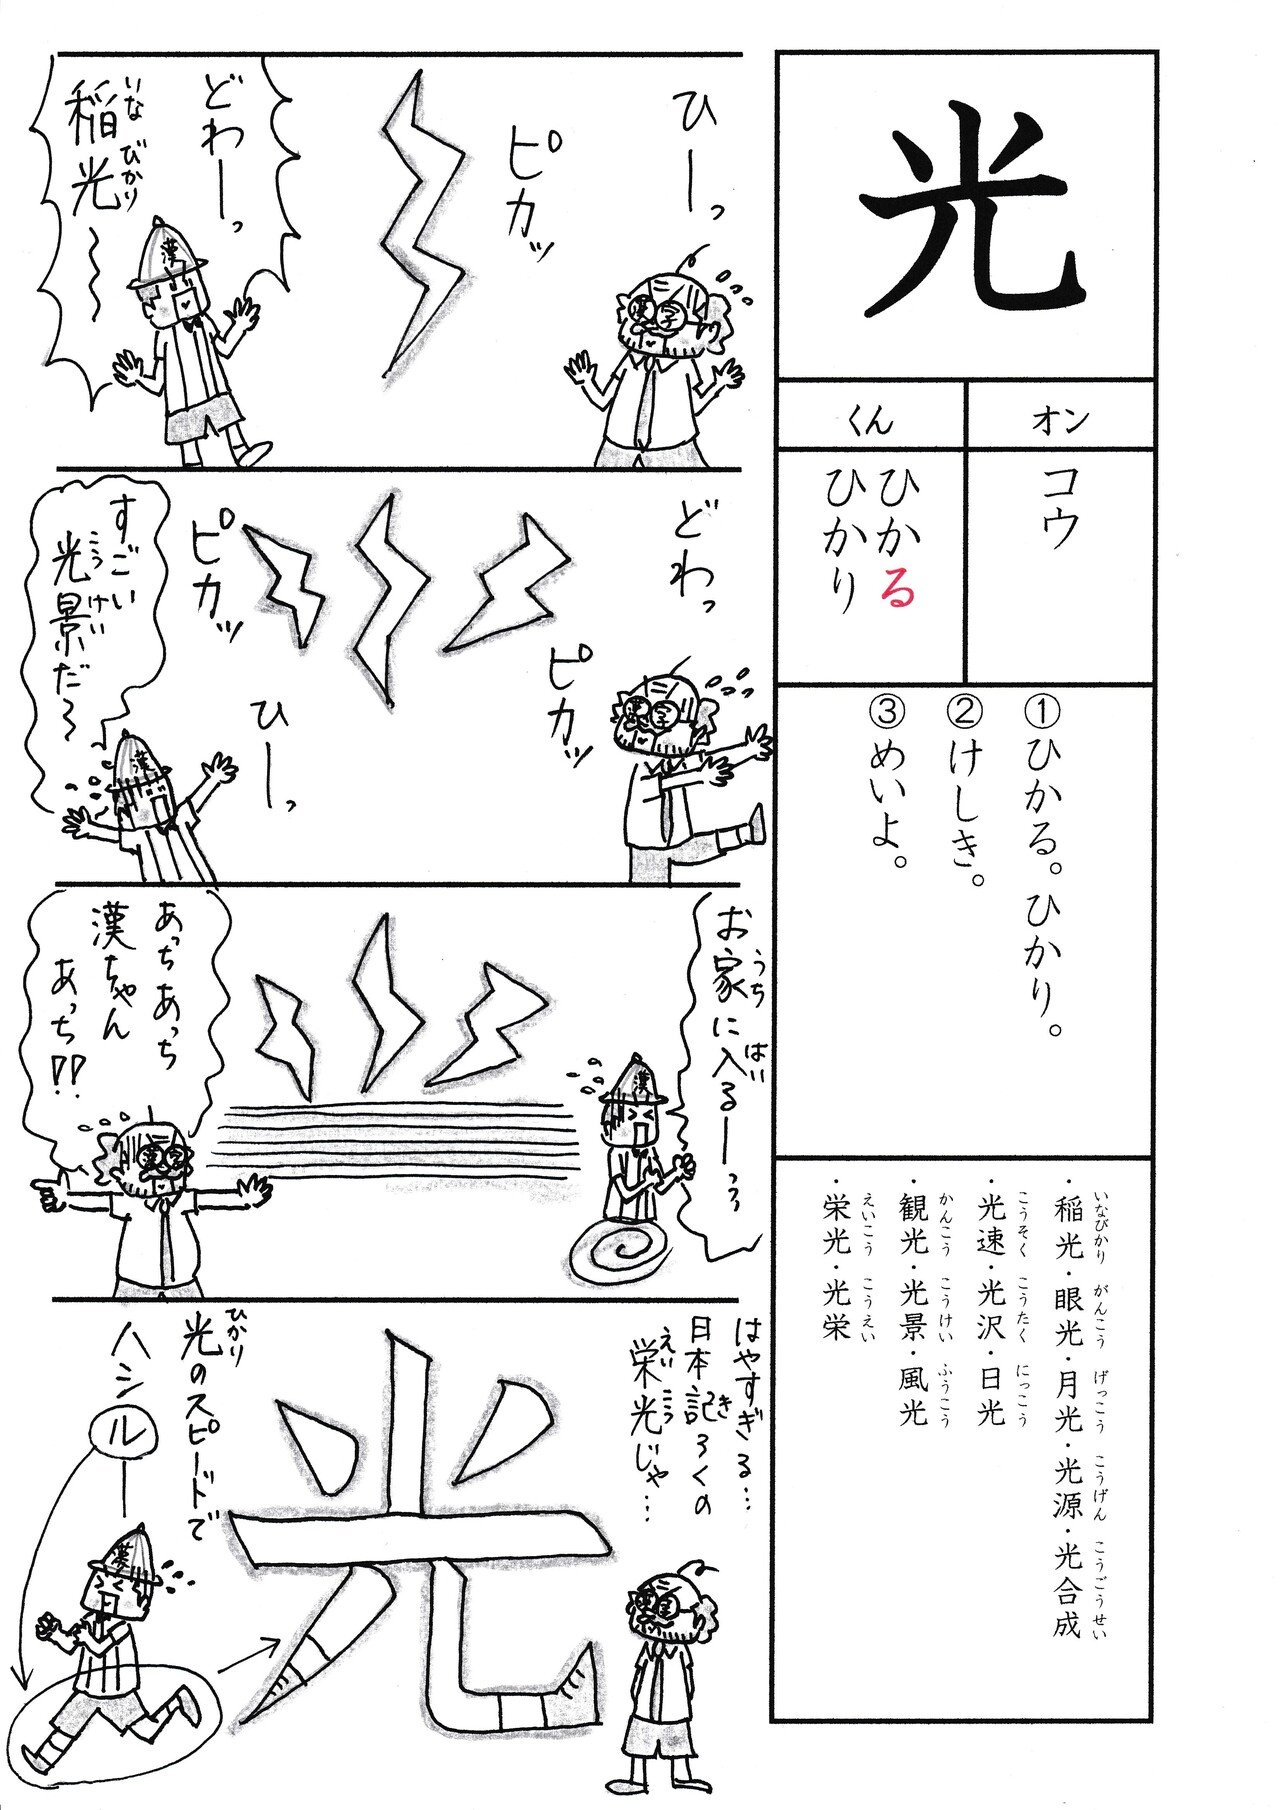 光
オン
コウ
くん
ひかる
ひかり
①ひかる。ひかり。
②けしき。
③めいよ。
・稲光・眼光・月光・光源・光合成
いなびかり がんこう げっこう こうげん こうごうせい
・光速・光沢・日光
こうそく こうたく にっこう
・観光・光景・風光
かんこう こうけい ふうこう
・栄光・光栄
えいこう こうえい
ひーっ
漢字
ピカッ
どわーっ
稲光~
いなびかり
漢
どわっ
ピカッ
漢字
ひーっ
ピカッ
すごい
光景だ~
こうけい
漢
お家に入るーっっ
うち はい
漢
あっちあっち
漢ちゃん
あっち!!
漢字
はやすぎる…
日本記ろくの
き
栄光じゃ…
えいこう
漢字
光
光のスピードで
ひかり
ハシルー
漢